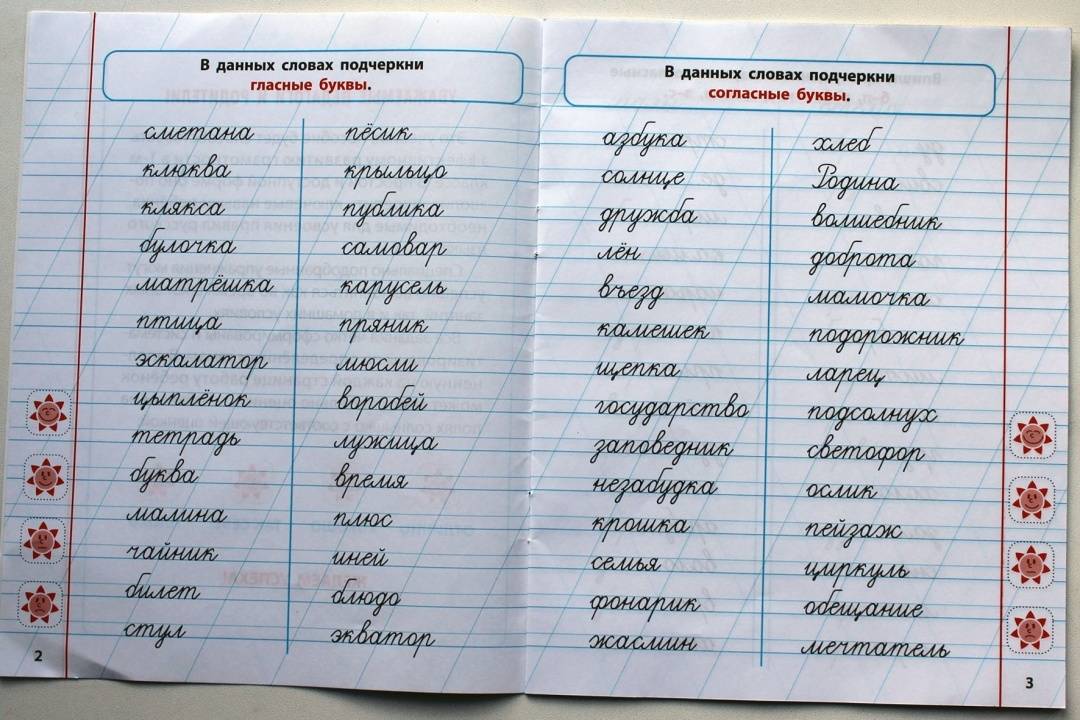 В данных словах подчеркни
гласные буквы.
сметана
клюква
клякса
булочка
матрёшка
птица
эскалатор
цыплёнок
тетрадь
буква
малина
чайник
билет
стул
пёсик
крыльцо
публика
самовар
карусель
пряник
мюсли
воробей
лужица
время
плюс
иней
блюдо
экватор
2
В данных словах подчеркни
согласные буквы.
азбука
солнце
дружба
лён
въезд
камешек
щепка
государство
заповедник
незабудка
крошка
семья
фонарик
жасмин
хлеб
Родина
волшебник
доброта
мамочка
подорожник
ларец
подсолнух
светофор
ослик
пейзаж
циркуль
обещание
мечтатель
3